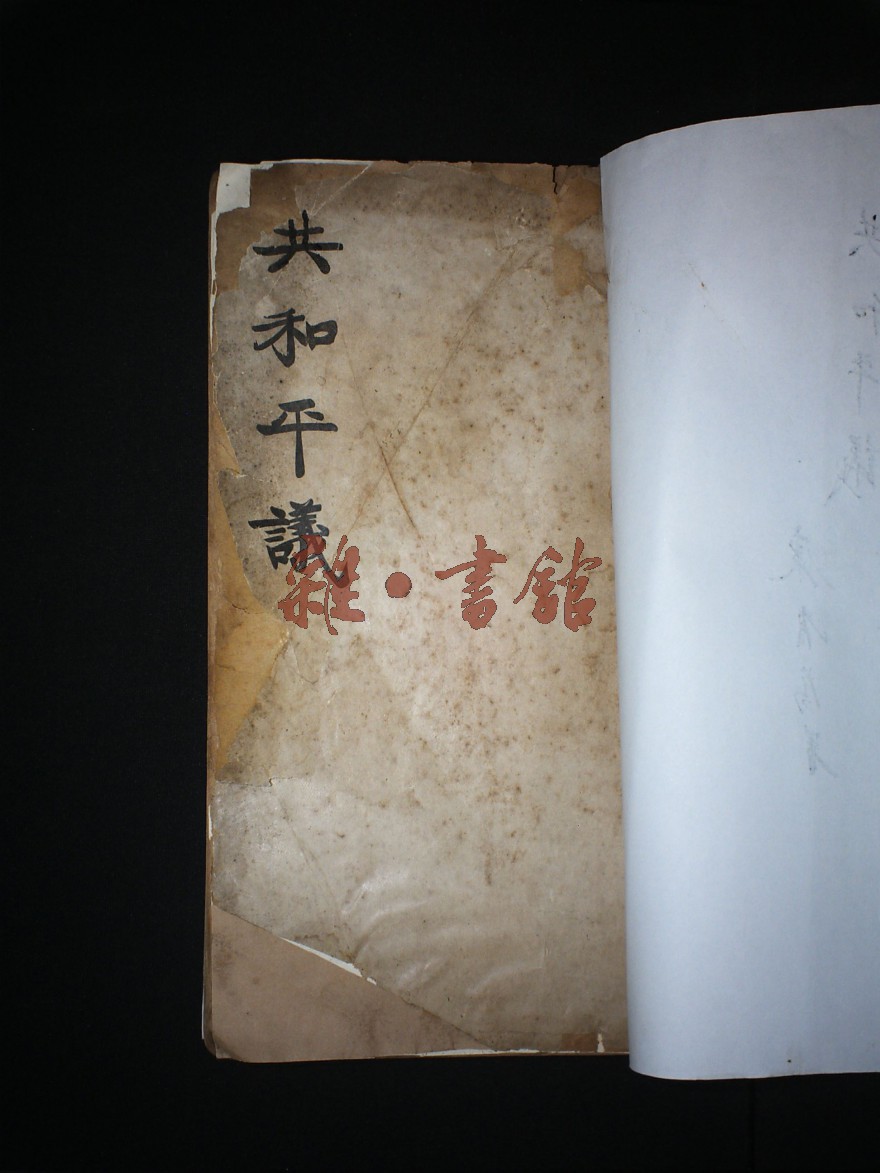 共和平議
雜·書館